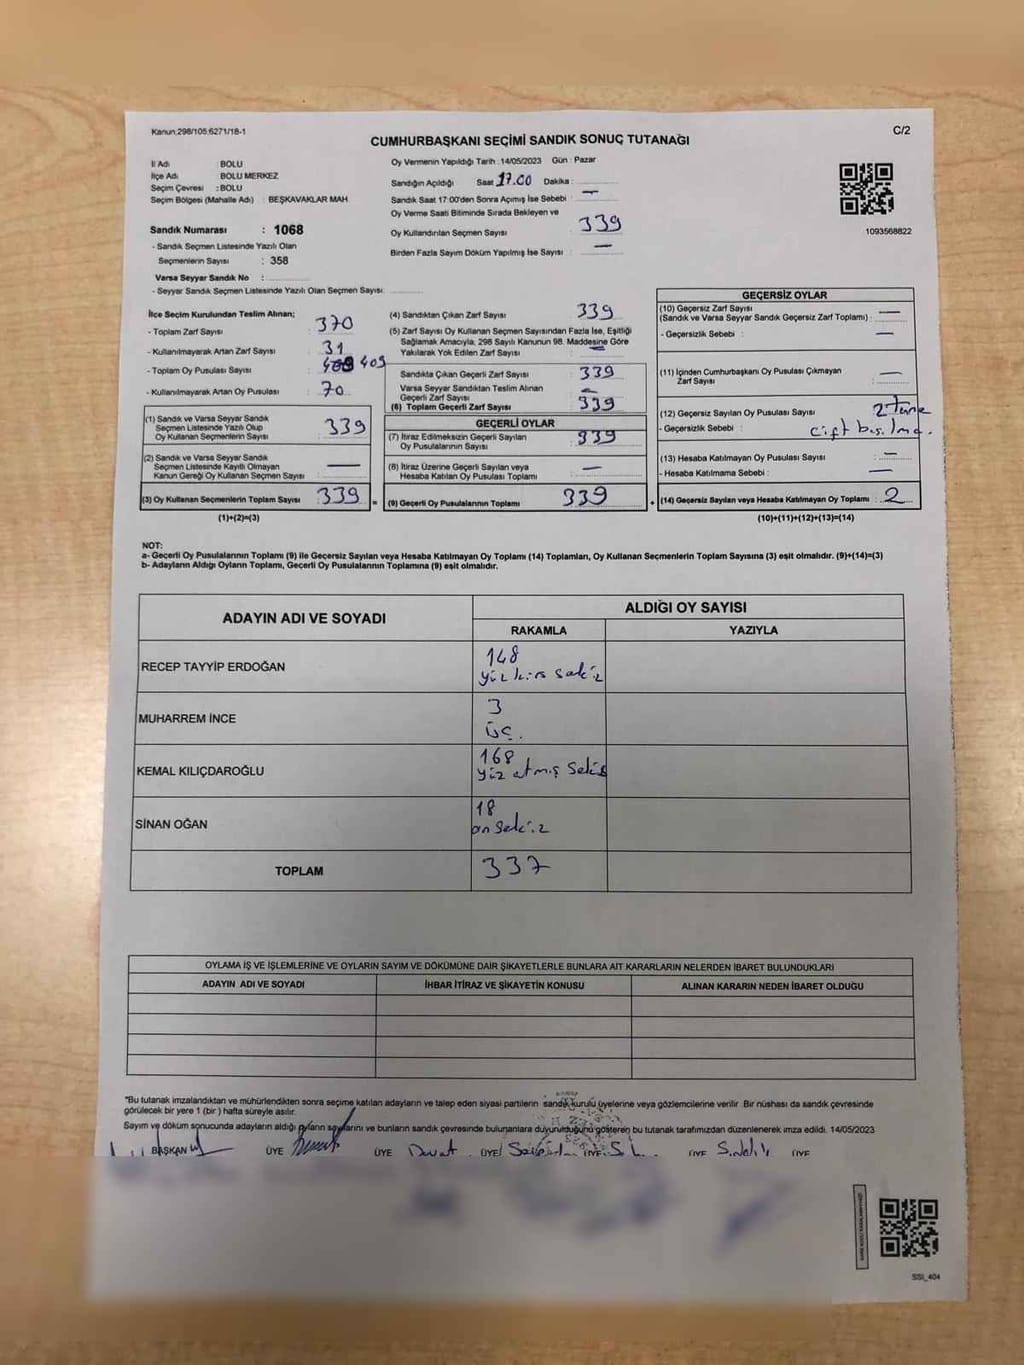 Kanun:298/105;6271/18-1
C/2
CUMHURBAŞKANI SEÇİMİ SANDIK SONUÇ TUTANAĞI
İl Adı BOLU
İlçe Adı BOLU MERKEZ
Seçim Çevresi : BOLU
Seçim Bölgesi (Mahalle Adı) : BEŞKAVAKLAR MAH.
Oy Vermenin Yapıldığı Tarih : 14/05/2023 Gün : Pazar
Sandığın Açıldığı Saat 17.00 Dakika :
Sandık Saat 17:00'den Sonra Açımış İse Sebebi : —
Oy Verme Saati Bitiminde Sırada Bekleyen ve
Oy Kullandırılan Seçmen Sayısı : 339
Birden Fazla Sayım Döküm Yapılmış İse Sayısı : —
1093568822
Sandık Numarası : 1068
- Sandık Seçmen Listesinde Yazılı Olan
Seçmenlerin Sayısı : 358
Varsa Seyyar Sandık No :
- Seyyar Sandık Seçmen Listesinde Yazılı Olan Seçmen Sayısı:
İlçe Seçim Kurulundan Teslim Alınan;
- Toplam Zarf Sayısı : 370
- Kullanılmayarak Artan Zarf Sayısı : 31
- Toplam Oy Pusulası Sayısı : 409
- Kullanılmayarak Artan Oy Pusulası : 70
(1) Sandık ve Varsa Seyyar Sandık
Seçmen Listesinde Yazılı Olup
Oy Kullanan Seçmenlerin Sayısı : 339
(2) Sandık ve Varsa Seyyar Sandık
Seçmen Listesinde Kayıtlı Olmayan
Kanun Gereği Oy Kullanan Seçmen Sayısı : —
(3) Oy Kullanan Seçmenlerin Toplam Sayısı : 339 =
(1)+(2)=(3)
(4) Sandıktan Çıkan Zarf Sayısı : 339
(5) Zarf Sayısı Oy Kullanan Seçmen Sayısından Fazla İse, Eşitliği
Sağlamak Amacıyla, 298 Sayılı Kanunun 98. Maddesine Göre
Yakılarak Yok Edilen Zarf Sayısı : —
Sandıkta Çıkan Geçerli Zarf Sayısı : 339
Varsa Seyyar Sandıktan Teslim Alınan
Geçerli Zarf Sayısı : —
(6) Toplam Geçerli Zarf Sayısı : 339
GEÇERLİ OYLAR
(7) İtiraz Edilmeksizin Geçerli Sayılan
Oy Pusulalarının Sayısı : 339
(8) İtiraz Üzerine Geçerli Sayılan veya
Hesaba Katılan Oy Pusulası Toplamı : —
(9) Geçerli Oy Pusulalarının Toplamı : 339 +
GEÇERSİZ OYLAR
(10) Geçersiz Zarf Sayısı
(Sandık ve Varsa Seyyar Sandık Geçersiz Zarf Toplamı) : —
- Geçersizlik Sebebi : —
(11) İçinden Cumhurbaşkanı Oy Pusulası Çıkmayan
Zarf Sayısı : —
(12) Geçersiz Sayılan Oy Pusulası Sayısı : 2 Tane
- Geçersizlik Sebebi : çift basılma.
(13) Hesaba Katılmayan Oy Pusulası Sayısı : —
- Hesaba Katılmama Sebebi : —
(14) Geçersiz Sayılan veya Hesaba Katılmayan Oy Toplamı : 2
(10)+(11)+(12)+(13)=(14)
NOT:
a- Geçerli Oy Pusulalarının Toplamı (9) ile Geçersiz Sayılan veya Hesaba Katılmayan Oy Toplamı (14) Toplamları, Oy Kullanan Seçmenlerin Toplam Sayısına (3) eşit olmalıdır. (9)+(14)=(3)
b- Adayların Aldığı Oyların Toplamı, Geçerli Oy Pusulalarının Toplamına (9) eşit olmalıdır.
ADAYIN ADI VE SOYADI
ALDIĞI OY SAYISI
RAKAMLA YAZIYLA
RECEP TAYYİP ERDOĞAN 148
yüz kırk sekiz
MUHARREM İNCE 3
üç.
KEMAL KILIÇDAROĞLU 168
yüz atmış sekiz
SİNAN OĞAN 18
on sekiz
TOPLAM 337
OYLAMA İŞ VE İŞLEMLERİNE VE OYLARIN SAYIM VE DÖKÜMÜNE DAİR ŞİKAYETLERLE BUNLARA AİT KARARLARIN NELERDEN İBARET BULUNDUKLARI
ADAYIN ADI VE SOYADI İHBAR İTİRAZ VE ŞİKAYETİN KONUSU ALINAN KARARIN NEDEN İBARET OLDUĞU
*Bu tutanak imzalandıktan ve mühürlendikten sonra seçime katılan adayların ve talep eden siyasi partilerin sandık kurulu üyelerine veya gözlemcilerine verilir. Bir nüshası da sandık çevresinde
görülecek bir yere 1 (bir ) hafta süreyle asılır.
Sayım ve döküm sonucunda adayların aldığı oyların sayılarını ve bunların sandık çevresinde bulunanlara duyurulduğunu gösteren bu tutanak tarafımızdan düzenlenerek imza edildi. 14/05/2023
BAŞKAN ÜYE ÜYE ÜYE ÜYE ÜYE ÜYE
SSI_404